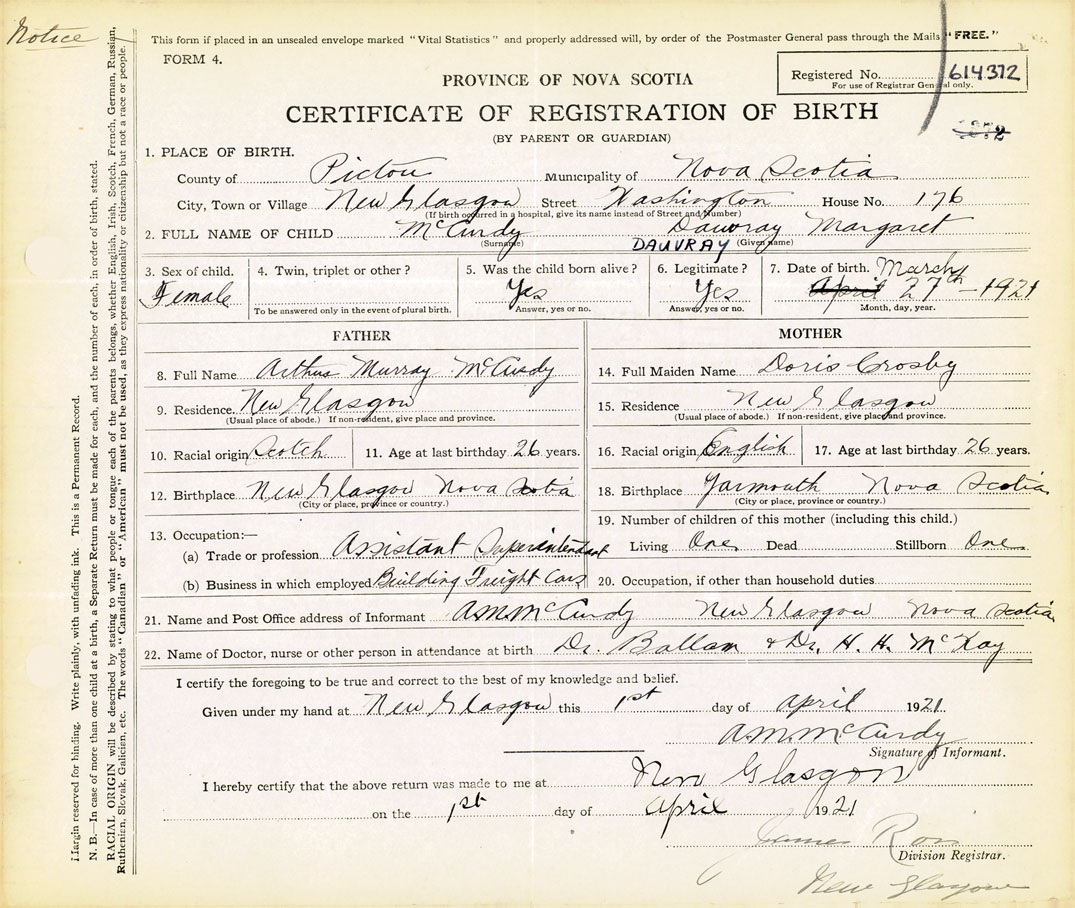 Notice
This form if placed in an unsealed envelope marked "Vital Statistics" and properly addressed will, by order of the Postmaster General pass through the Mails "FREE."
FORM 4.
PROVINCE OF NOVA SCOTIA
Registered No. 614372
For use of Registrar General only.
CERTIFICATE OF REGISTRATION OF BIRTH
(BY PARENT OR GUARDIAN)
1. PLACE OF BIRTH.
County of Pictou Municipality of Nova Scotia
City, Town or Village New Glasgow Street Washington House No. 176
(If birth occurred in a hospital, give its name instead of Street and Number)
2. FULL NAME OF CHILD McCurdy Dauvray Margaret
(Surname) DAUVRAY (Given name)
3. Sex of child. Female
4. Twin, triplet or other?
To be answered only in the event of plural birth.
5. Was the child born alive? Yes
Answer, yes or no.
6. Legitimate? Yes
Answer, yes or no.
7. Date of birth. March
April 27th - 1921
Month, day, year.
FATHER
8. Full Name Arthur Murray McCurdy
9. Residence. New Glasgow
(Usual place of abode.) If non-resident, give place and province.
10. Racial origin Scotch 11. Age at last birthday 26 years.
12. Birthplace New Glasgow Nova Scotia
(City or place, province or country.)
13. Occupation:—
(a) Trade or profession Assistant Superintendant
(b) Business in which employed Building Freight Cars
MOTHER
14. Full Maiden Name Doris Crosby
15. Residence New Glasgow
(Usual place of abode.) If non-resident, give place and province.
16. Racial origin English 17. Age at last birthday 26 years.
18. Birthplace Yarmouth Nova Scotia
(City or place, province or country.)
19. Number of children of this mother (including this child.)
Living One Dead Stillborn One
20. Occupation, if other than household duties
21. Name and Post Office address of Informant A.M. McCurdy New Glasgow Nova Scotia
22. Name of Doctor, nurse or other person in attendance at birth Dr. Ballam & Dr. H. H. McKay
I certify the foregoing to be true and correct to the best of my knowledge and belief.
Given under my hand at New Glasgow this 1st day of April 1921.
A.M. McCurdy
Signature of Informant.
I hereby certify that the above return was made to me at New Glasgow
on the 1st day of April 1921
James Ross
Division Registrar.
New Glasgow
Margin reserved for binding. Write plainly, with unfading ink. This is a Permanent Record.
N. B.—In case of more than one child at a birth, a Separate Return must be made for each, and the number of each, in order of birth, stated.
RACIAL ORIGIN will be described by stating to what people or tongue each of the parents belongs, whether English, Irish, Scotch, French, German, Russian,
Ruthenian, Slovak, Galicien, etc. The words "Canadian" or "American" must not be used, as they express nationality or citizenship but not a race or people.